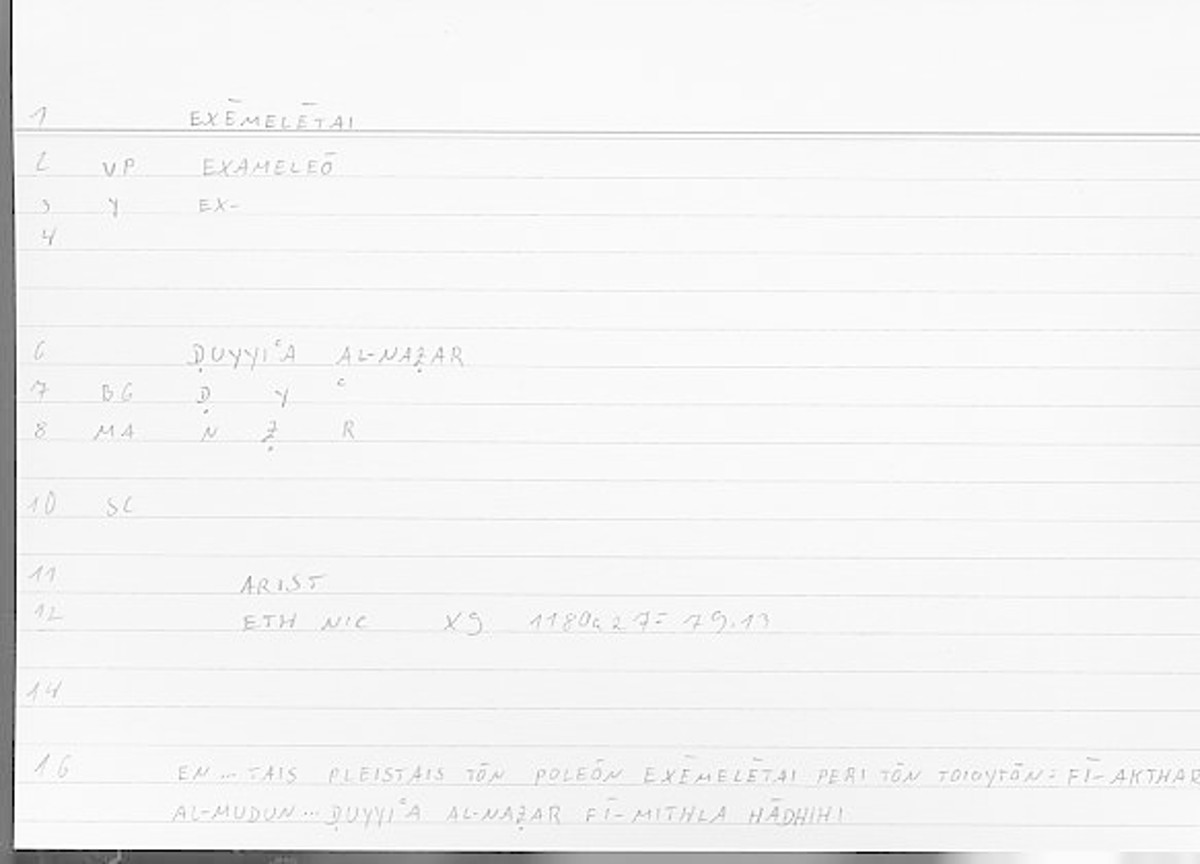 1 EXĒMELĒTAI
2 VP EXAMELEŌ
3 Y EX-
4
6 ḌUYYIʿA AL-NAẒAR
7 BG Ḍ Y ʿ
8 MA N Ẓ R
10 SC
11 ARIST
12 ETH NIC X9 1180a27= 79.13
14
16 EN ... TAIS PLEISTAIS TŌN POLEŌN EXĒMELĒTAI PERI TŌN TOIOYTŌN: FĪ-AKTHAR
AL-MUDUN ... ḌUYYIʿA AL-NAẒAR FĪ-MITHLA HĀDHIHI